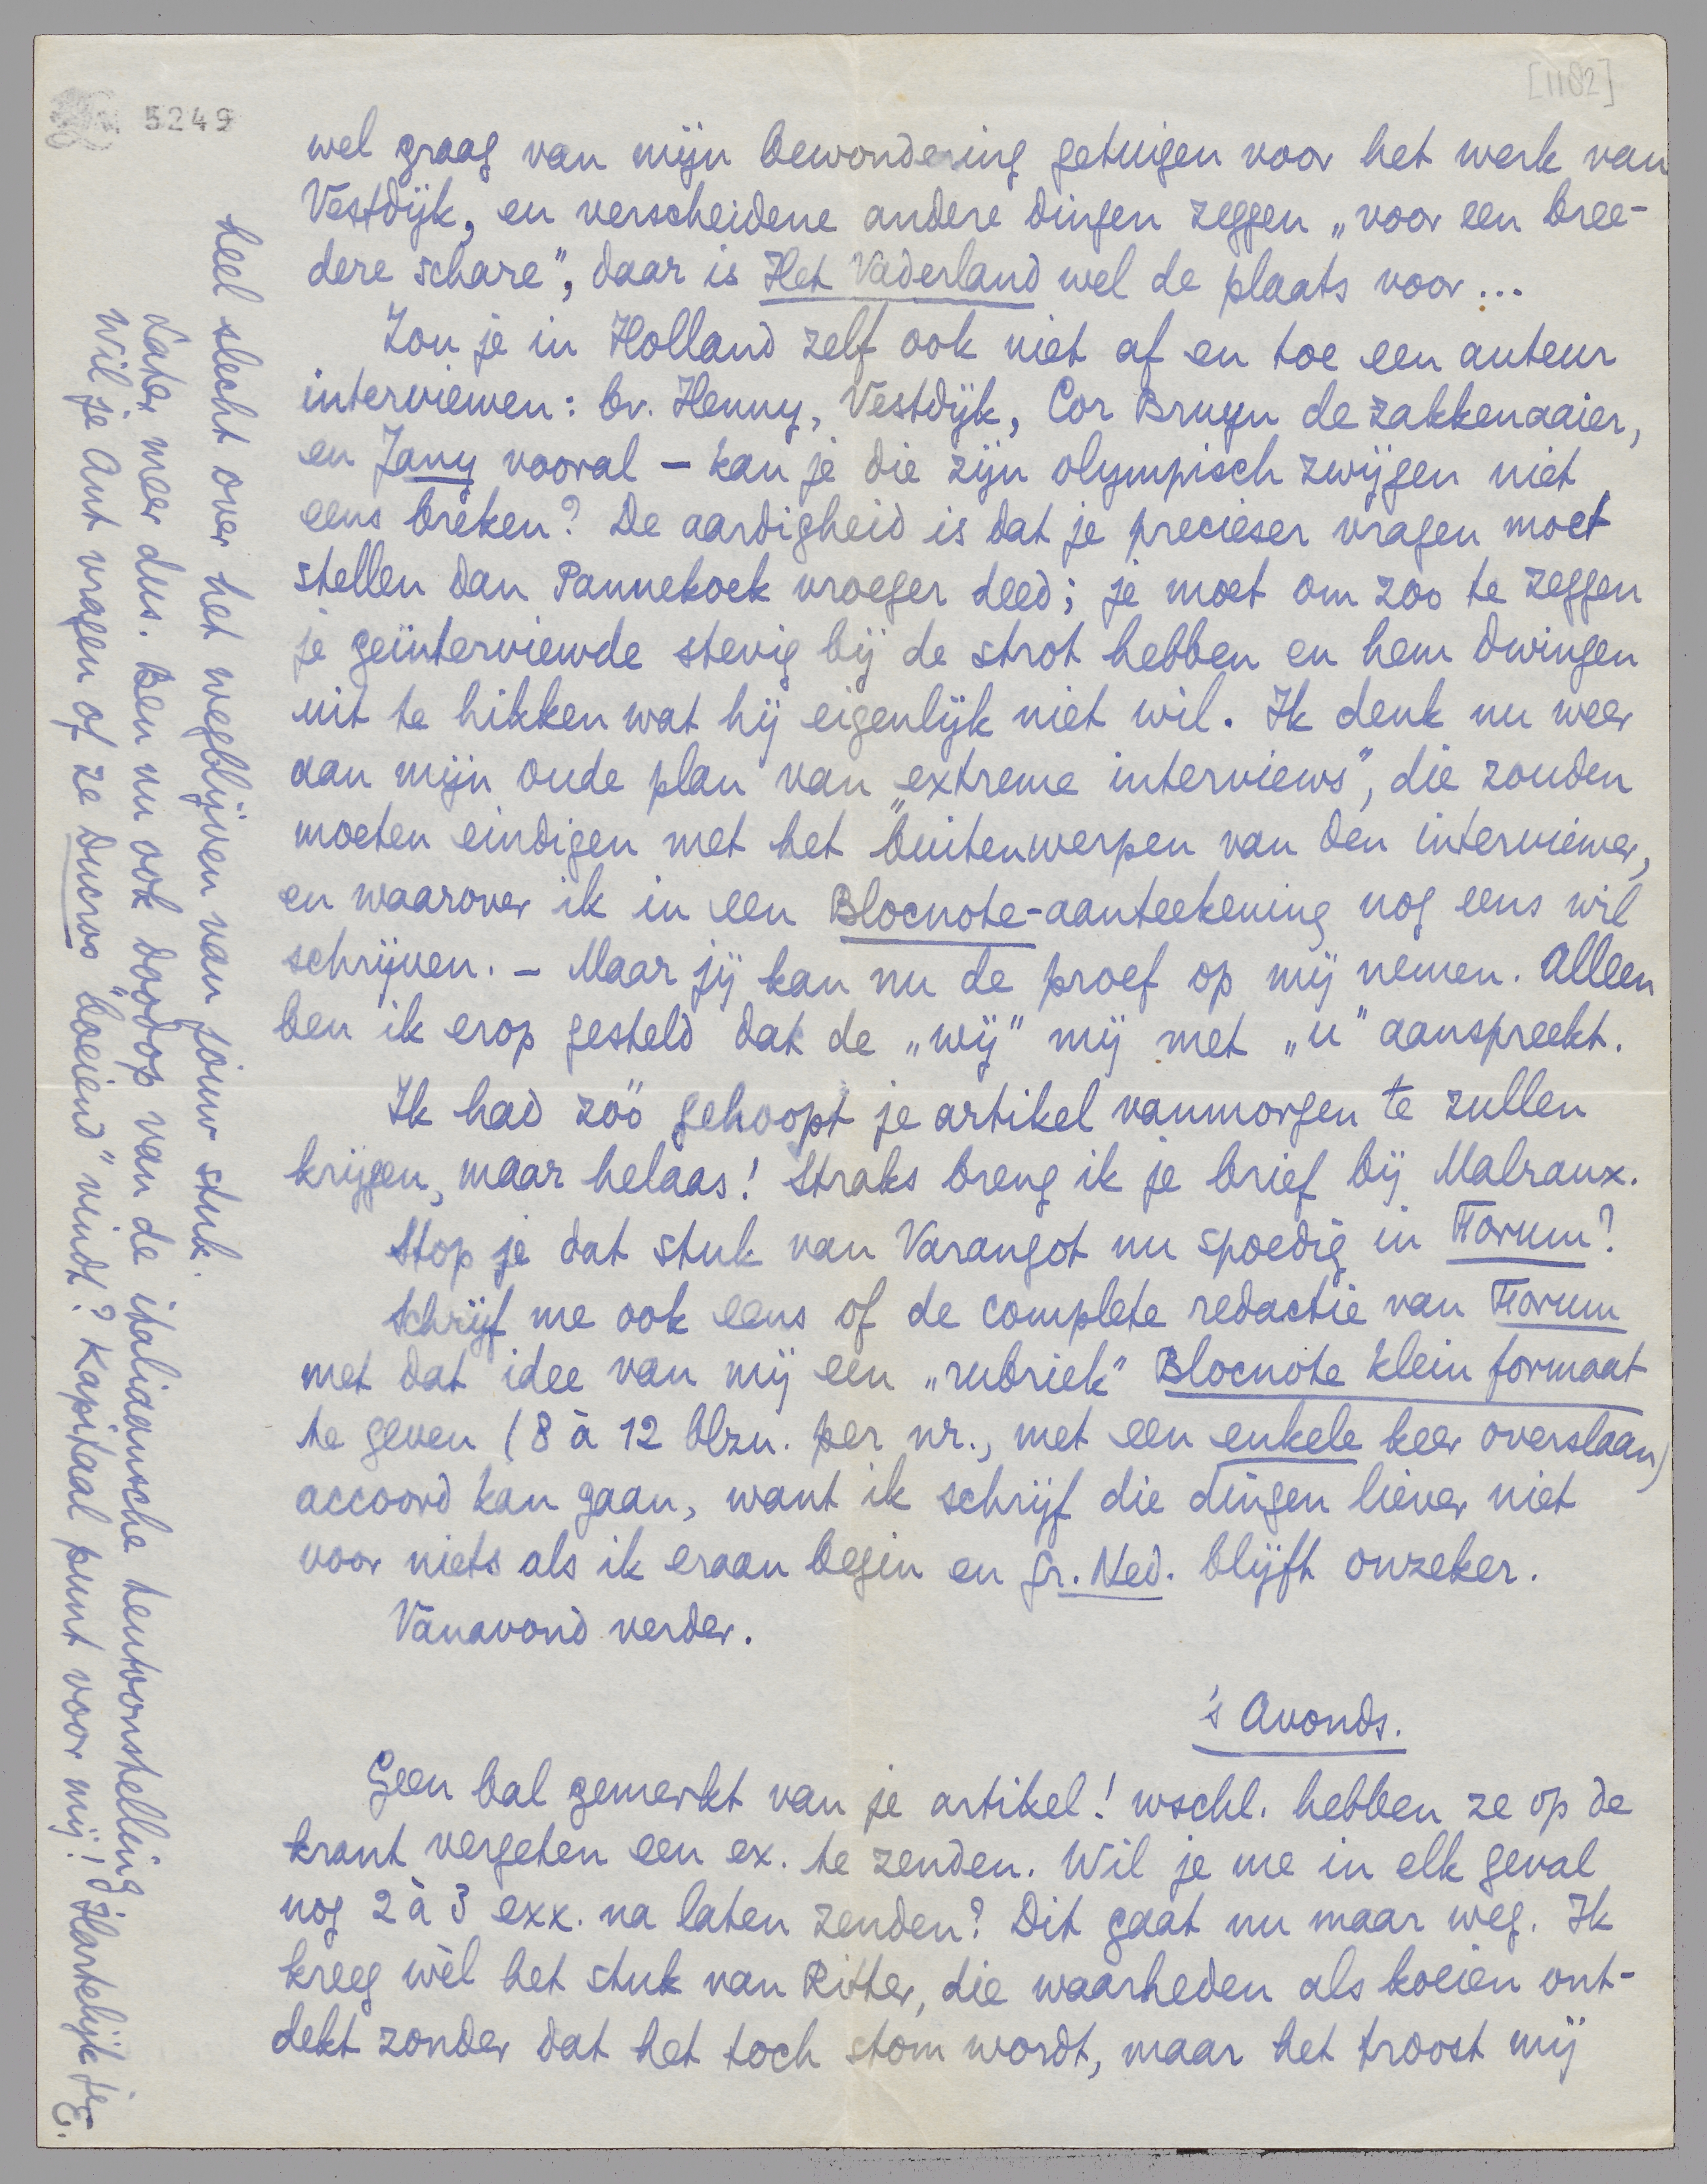 [1182]
5249
wel graag van mijn bewondering getuigen voor het werk van
Vestdijk, en verscheidene andere dingen zeggen „voor een bree-
dere schare”, daar is Het Vaderland wel de plaats voor...
Zou je in Holland zelf ook niet af en toe een auteur
interviewen: bv. Henny, Vestdijk, Cor Bruyn de zakkenaaier,
en Jany vooral – kan je die zijn olympisch zwijgen niet
eens breken? De aardigheid is dat je precieser vragen moet
stellen dan Pannekoek vroeger deed; je moet om zoo te zeggen
je geïnterviewde stevig bij de strot hebben en hem dwingen
uit te hikken wat hij eigenlijk niet wil. Ik denk nu weer
aan mijn oude plan van „extreme interviews”, die zouden
moeten eindigen met het buitenwerpen van den interviewer,
en waarover ik in een Blocnote-aanteekening nog eens wil
schrijven. – Maar jij kan nu de proef op mij nemen. Alleen
ben ik erop gesteld dat de „wij” mij met „u” aanspreekt.
Ik had zóó gehoopt je artikel vanmorgen te zullen
krijgen, maar helaas! Straks breng ik je brief bij Malraux.
Stop je dat stuk van Varangot nu spoedig in Forum?
Schrijf me ook eens of de complete redactie van Forum
met dat idee van mij een „rubriek” Blocnote klein formaat
te geven (8 à 12 blzn. per nr., met een enkele keer overslaan)
accoord kan gaan, want ik schrijf die dingen liever niet
voor niets als ik eraan begin en Gr. Ned. blijft onzeker.
Vanavond verder.
's Avonds.
Geen bal gemerkt van je artikel! wschl. hebben ze op de
krant vergeten een ex. te zenden. Wil je me in elk geval
nog 2 à 3 exx. na laten zenden? Dit gaat nu maar weg. Ik
kreeg wèl het stuk van Ritter, die waarheden als koeien ont-
dekt zonder dat het toch stom wordt, maar het troost mij
heel slecht over het wegblijven van jouw stuk.
Later meer dus. Ben nu ook doodop van de italiaansche tentoonstelling.
Wil je Ant vragen of ze Ducroo „boeiend” vindt? Kapitaal punt voor mij! Hartelijk je E.